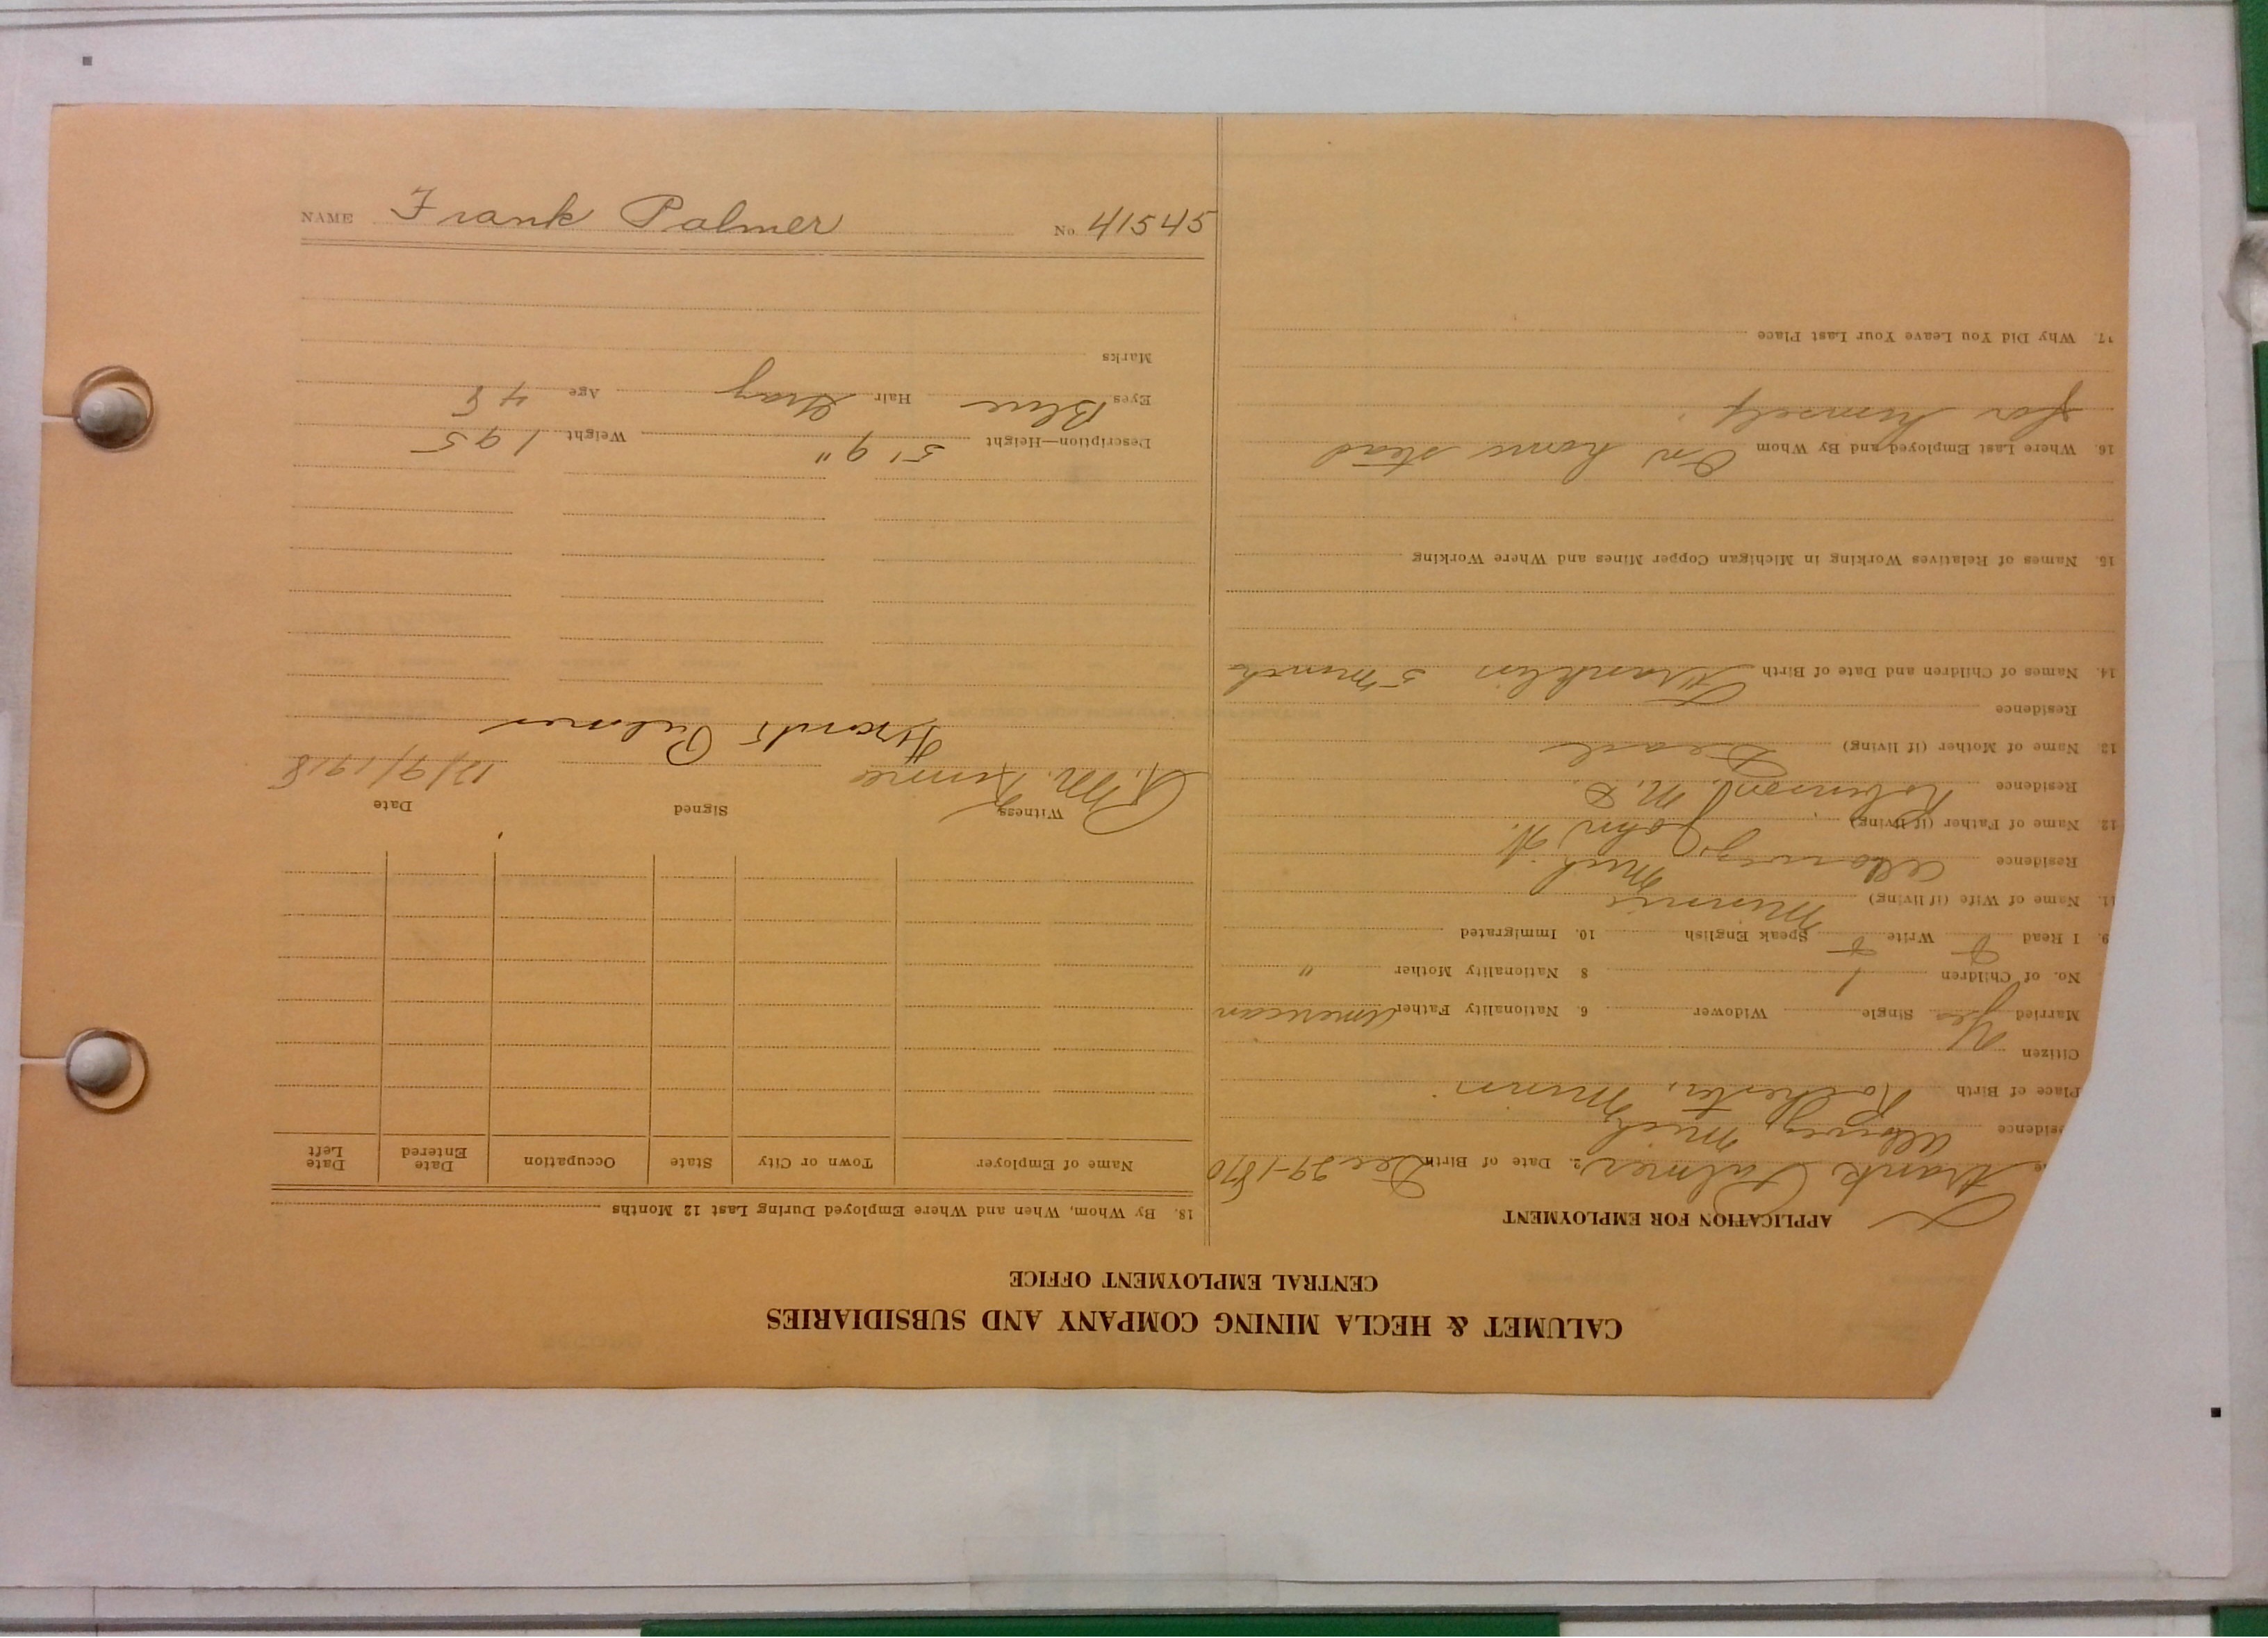 NAME Frank Palmer No. 41545
CALUMET & HECLA MINING COMPANY AND SUBSIDIARIES
CENTRAL EMPLOYMENT OFFICE
APPLICATION FOR EMPLOYMENT
Frank Palmer 2. Date of Birth Dec 29-1870
esidence Mich
Place of Birth Rochester, Minn
Citizen
Married Yes Single Widower 6. Nationality Father American
No. of Children 1 8 Nationality Mother "
9. I Read Write Speak English 10. Immigrated
11. Name of Wife (if living) Minnie
Residence Mich
12. Name of Father (if living) John H.
Residence Robinson N. D.
13 Name of Mother (if living) Dead
Residence
14. Names of Children and Date of Birth Franklin 5 Month
15. Names of Relatives Working in Michigan Copper Mines and Where Working
16. Where Last Employed and By Whom On home stead
for himself.
17. Why Did You Leave Your Last Place
18. By Whom, When and Where Employed During Last 12 Months
Name of Employer Town or City State Occupation Date Entered Date Left
Witness Signed Date
12/9/1918
Frank Palmer
Description—Height 5' 9" Weight 195
Eyes Blue Hair Gray Age 48
Marks